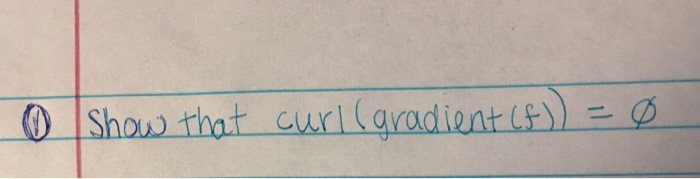 ① Show that curl(gradient(f)) = ∅